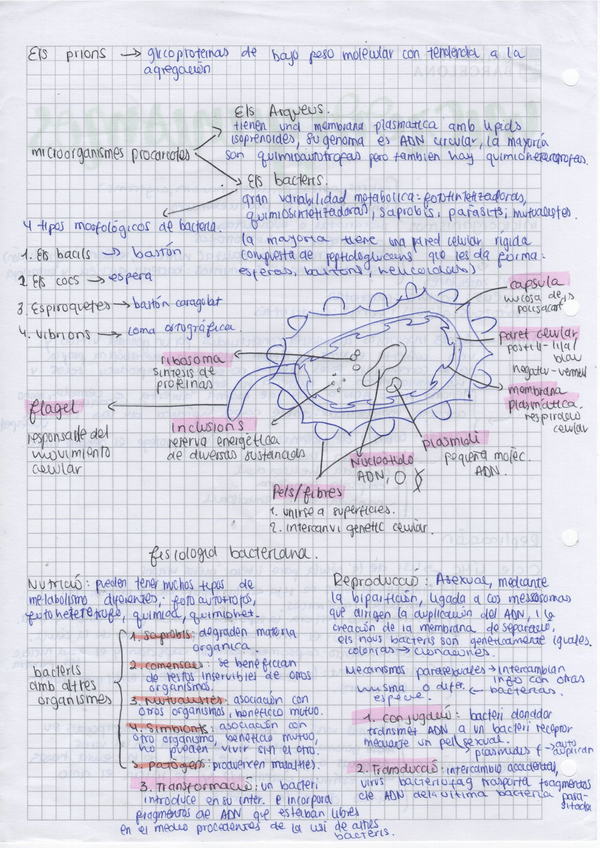 Els prions → glicoproteinas de bajo peso molecular con tendencia a la
agregación
Els Arqueus.
tienen una membrana plasmatica amb lipids
isoprenoides, su genoma es ADN circular, la mayoría
son quimioautotrofas pero tambien hay quimioheterotrofas.
microorganismes procariotes
Els bacteris.
gran variabilidad metabolica: fotosintetizadoras,
quimiosintetizadoras, saprobis, parasits, mutualistes.
la mayoría tiene una pared celular rígida
compuesta de peptidoglucans que les da forma:
esferas, bastons, helicoidals)
4 tipos morfológicos de bacteria.
1. Els bacils → bastón
2 Els cocs → espera
3. Espiroquetes → bastón caragolat
4. vibrions → coma ortográfica.
capsula
mucosa de
polisacar
paret celular
positiu-lila/
blau
negatiu-vermell
membrana
plasmàtica
respiració
celular
ribosoma
síntesis de
proteinas
flagel
responsable del
movimiento
celular
Inclusions
reserva energética
de diversas sustancias
Nucleotido
ADN,
plasmidi
pequeña molec.
ADN.
Pels/fibres
1. unirse a superficies.
2. intercanvi genetic celular.
fisiologia bacteriana.
Nutrició: pueden tener muchos tipos de
metabolismo diferentes: fotoautotrofos,
fotoheterotrofo, quimioa, quimiohet.
bacteris
amb altres
organismes
1. saprobis: degraden materia
organica.
2. comensals: se benefician
de restos inservibles de otros
organismos.
3. Mutualistes: asociación con
otros organismos, beneficio mutuo.
4. Simbionts: asociación con
otro organismo, beneficio mutuo,
no pueden vivir sin el otro.
5. patògens: produeixen malalties.
Reproducció: Asexual, mediante
la bipartición, ligada a los mesosomas
que dirigen la duplicación del ADN, i la
creación de la membrana de separació,
els nous bacteris son genéticamente iguales.
colonias → clonaciones.
Mecanismos parasexuales → intercambian
info con otras
bacterias.
misma o difer.
especie.
1. conjugació: bacteri donador
transmet ADN a un bacteri receptor
mediante un pell sexual.
→ plasmidis f
2. Transducció: intercambio accidental,
virus bacteriofag trasporta fragmentos
de ADN de la última bacteria para-
sitada
3. Transformació: un bacteri
introduce en su inter. e incorpora
fragmentos de ADN que estaban libres
en el medio procedentes de la lisi de altres
bacteris.